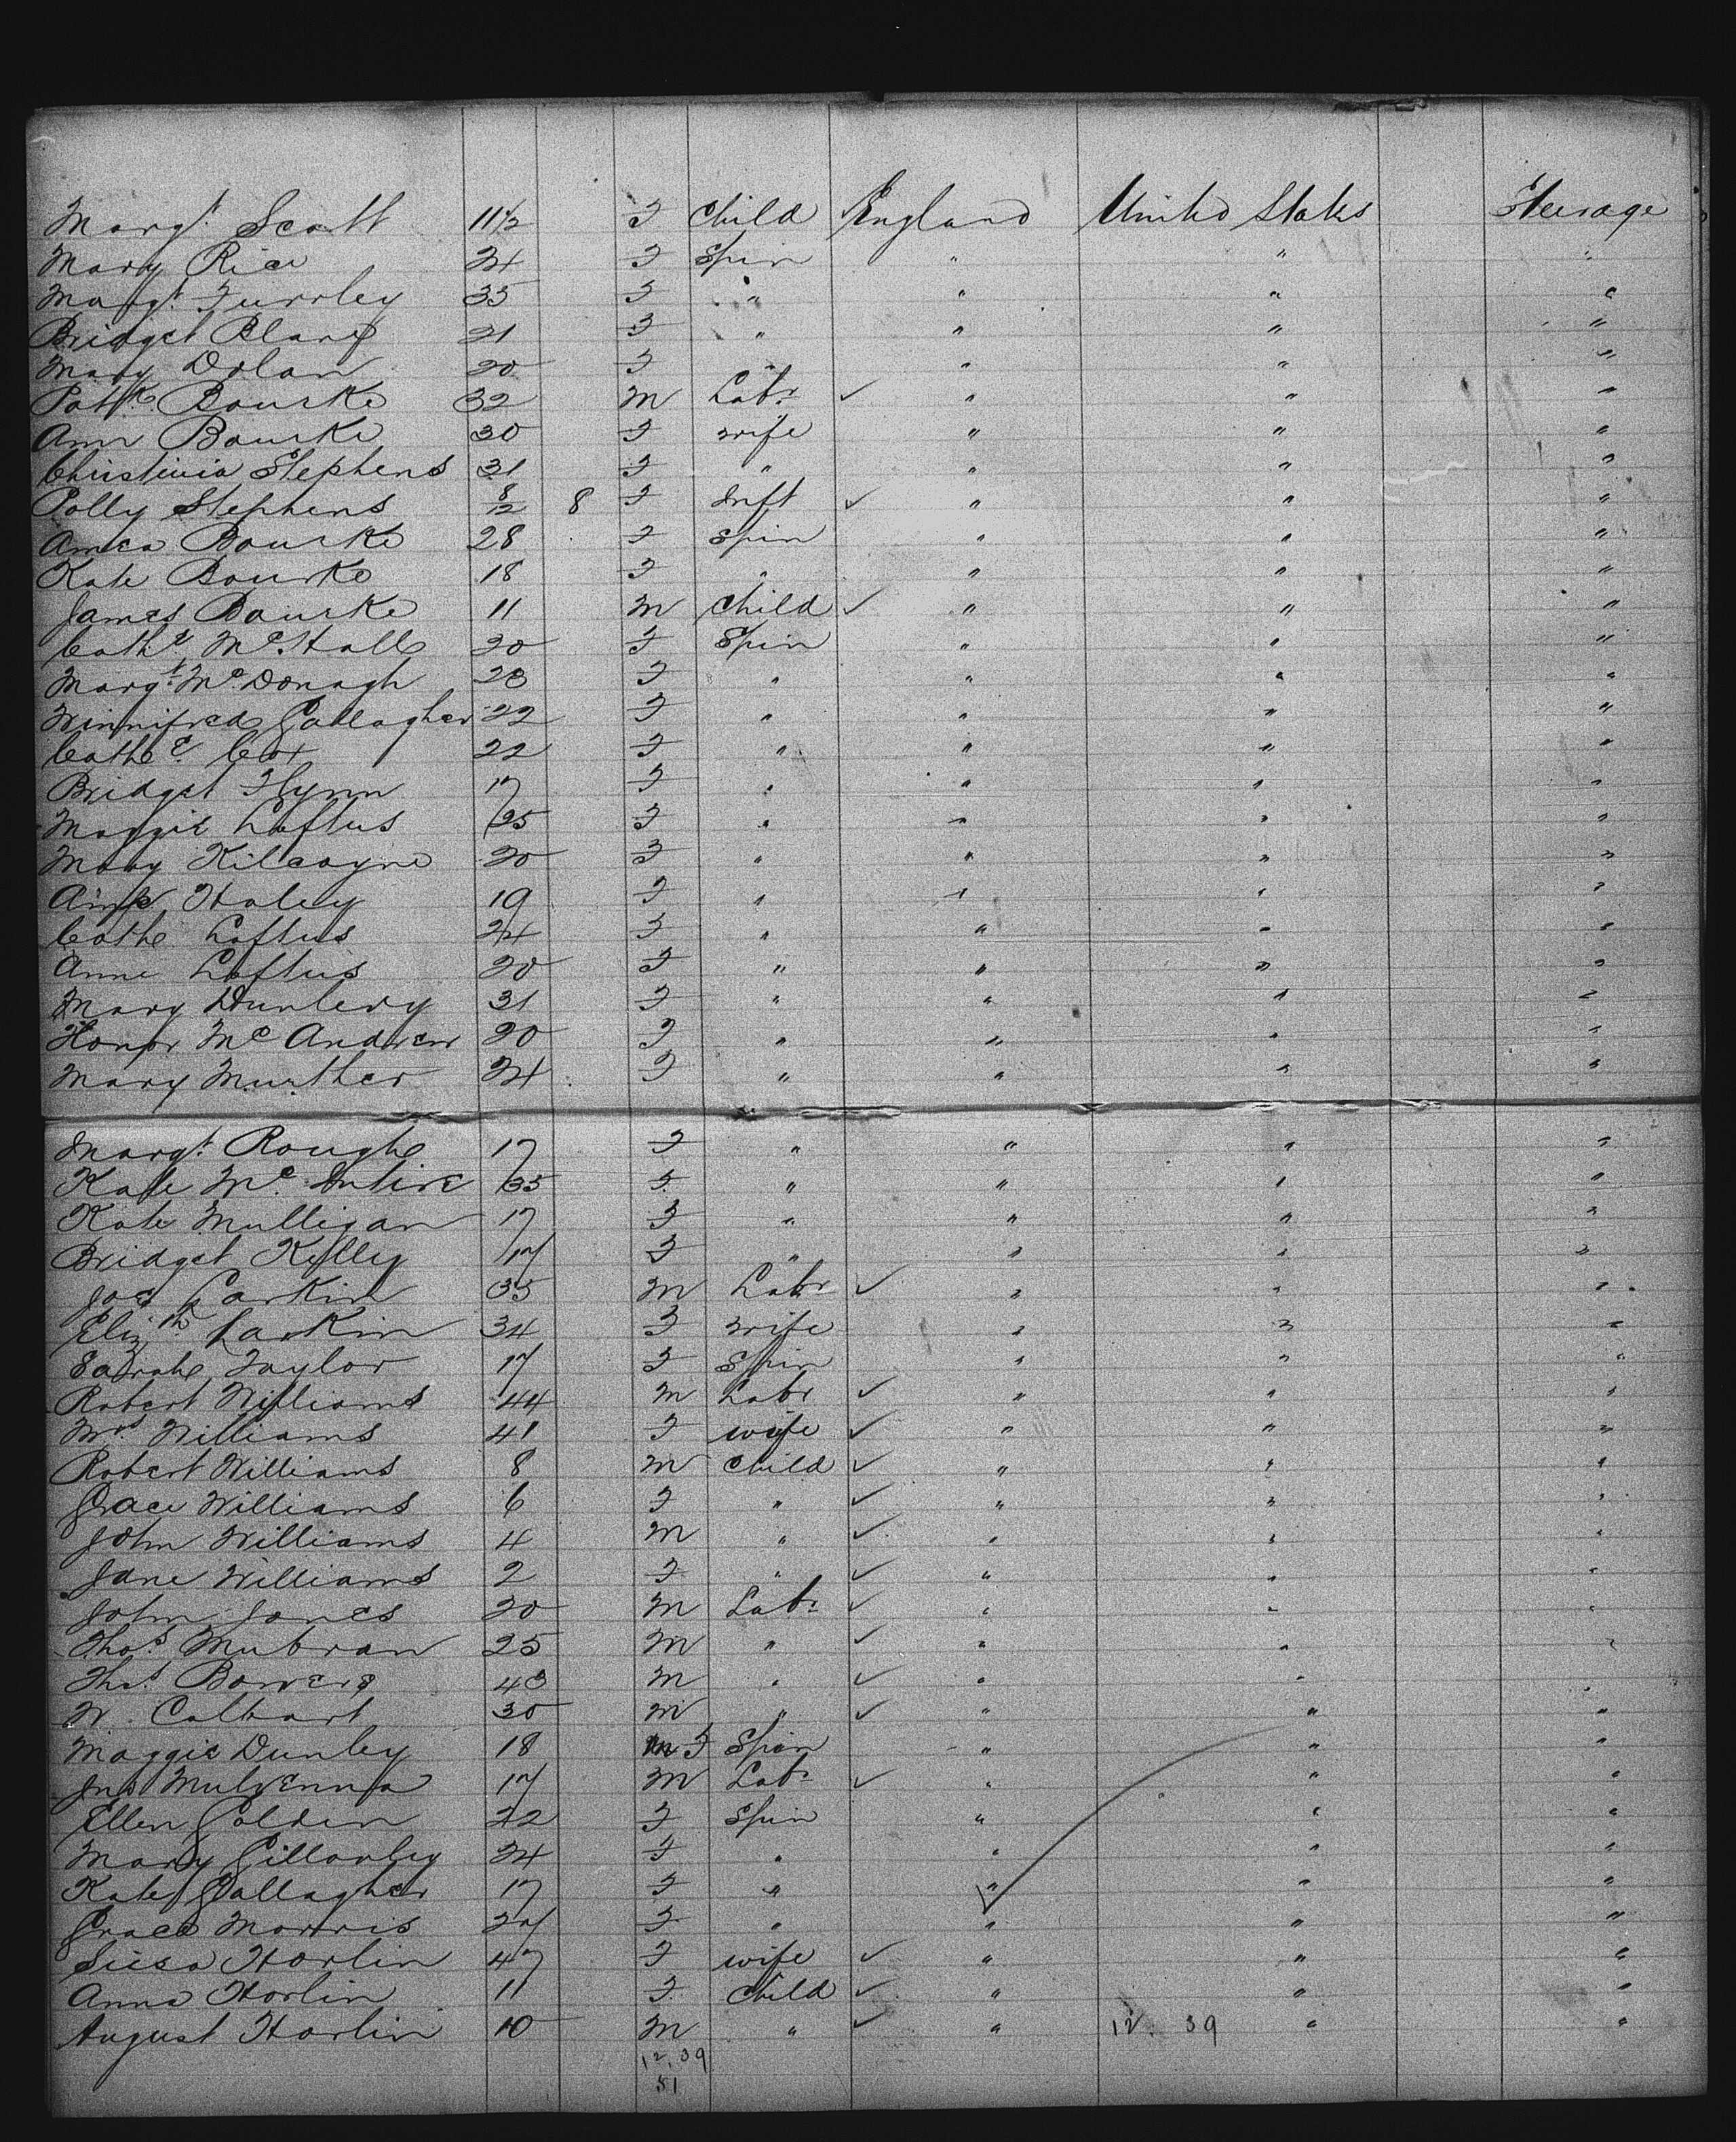 Margt. Scott 11½ F Child England United States Steerage
Mary Rice 24 F Spin " " "
Margt. Turrley 35 F " " " "
Bridget Bland 21 F " " " "
Mary Dolan 20 F " " " "
Patk. Bourke 32 M Labr ✓ " " "
Ann Bourke 30 F wife " " "
Christinia Stephens 31 F " " " "
Polly Stephens 8/12 8 F Inft ✓ " " "
Bourke 28 F Spin " " "
Kate Bourke 18 F " " " "
James Bourke 11 M Child ✓ " " "
Cathe. McHall 20 F Spin " " "
Margt. McDonagh 28 F " " " "
Winnifred Gallagher 22 F " " " "
Cathe. Cox 22 F " " " "
Bridget Flynn 17 F " " " "
Maggie Loftus 25 F " " " "
Mary Kilcoyne 20 F " " " "
Haley 19 F " " " "
Cathe Loftus 24 F " " " "
Anne Loftus 20 F " " " "
Mary Dunlevy 31 F " " " "
Honor McAndrew 20 F " " " "
Mary Murther 24 F " " " "
Margt. Roughe 17 F " " " "
Kate McIntire 35 F " " " "
Kate Mulligan 17 F " " " "
Bridget Kelly 17 F " " " "
Jos Larkin 35 M Labr ✓ " " "
Elizth. Larkin 34 F wife " " "
Sarah Taylor 17 F Spin " " "
Robert Williams 44 M Labr ✓ " " "
Mrs. Williams 41 F wife ✓ " " "
Robert Williams 8 M Child ✓ " " "
Grace Williams 6 F " ✓ " " "
John Williams 4 M " ✓ " " "
Jane Williams 2 F " ✓ " " "
John Jones 20 M Labr ✓ " " "
Thos. Mubran 25 M " ✓ " " "
Thos. Bowers 43 M " ✓ " " "
W. Calhart 30 M " ✓ " " "
Maggie Dunley 18 F Spin " " "
Jno Mulvenna 17 M Labr ✓ " " "
Ellen Golden 22 F Spin " " "
Mary Gillorley 24 F " " " "
Kate Gallagher 17 F " " " "
Grace Morris 27 F " " " "
Horlin 47 F wife ✓ " " "
Anna Horlin 11 F Child ✓ " " "
August Horlin 10 M " ✓ " 12. 39 " "
12.39
51